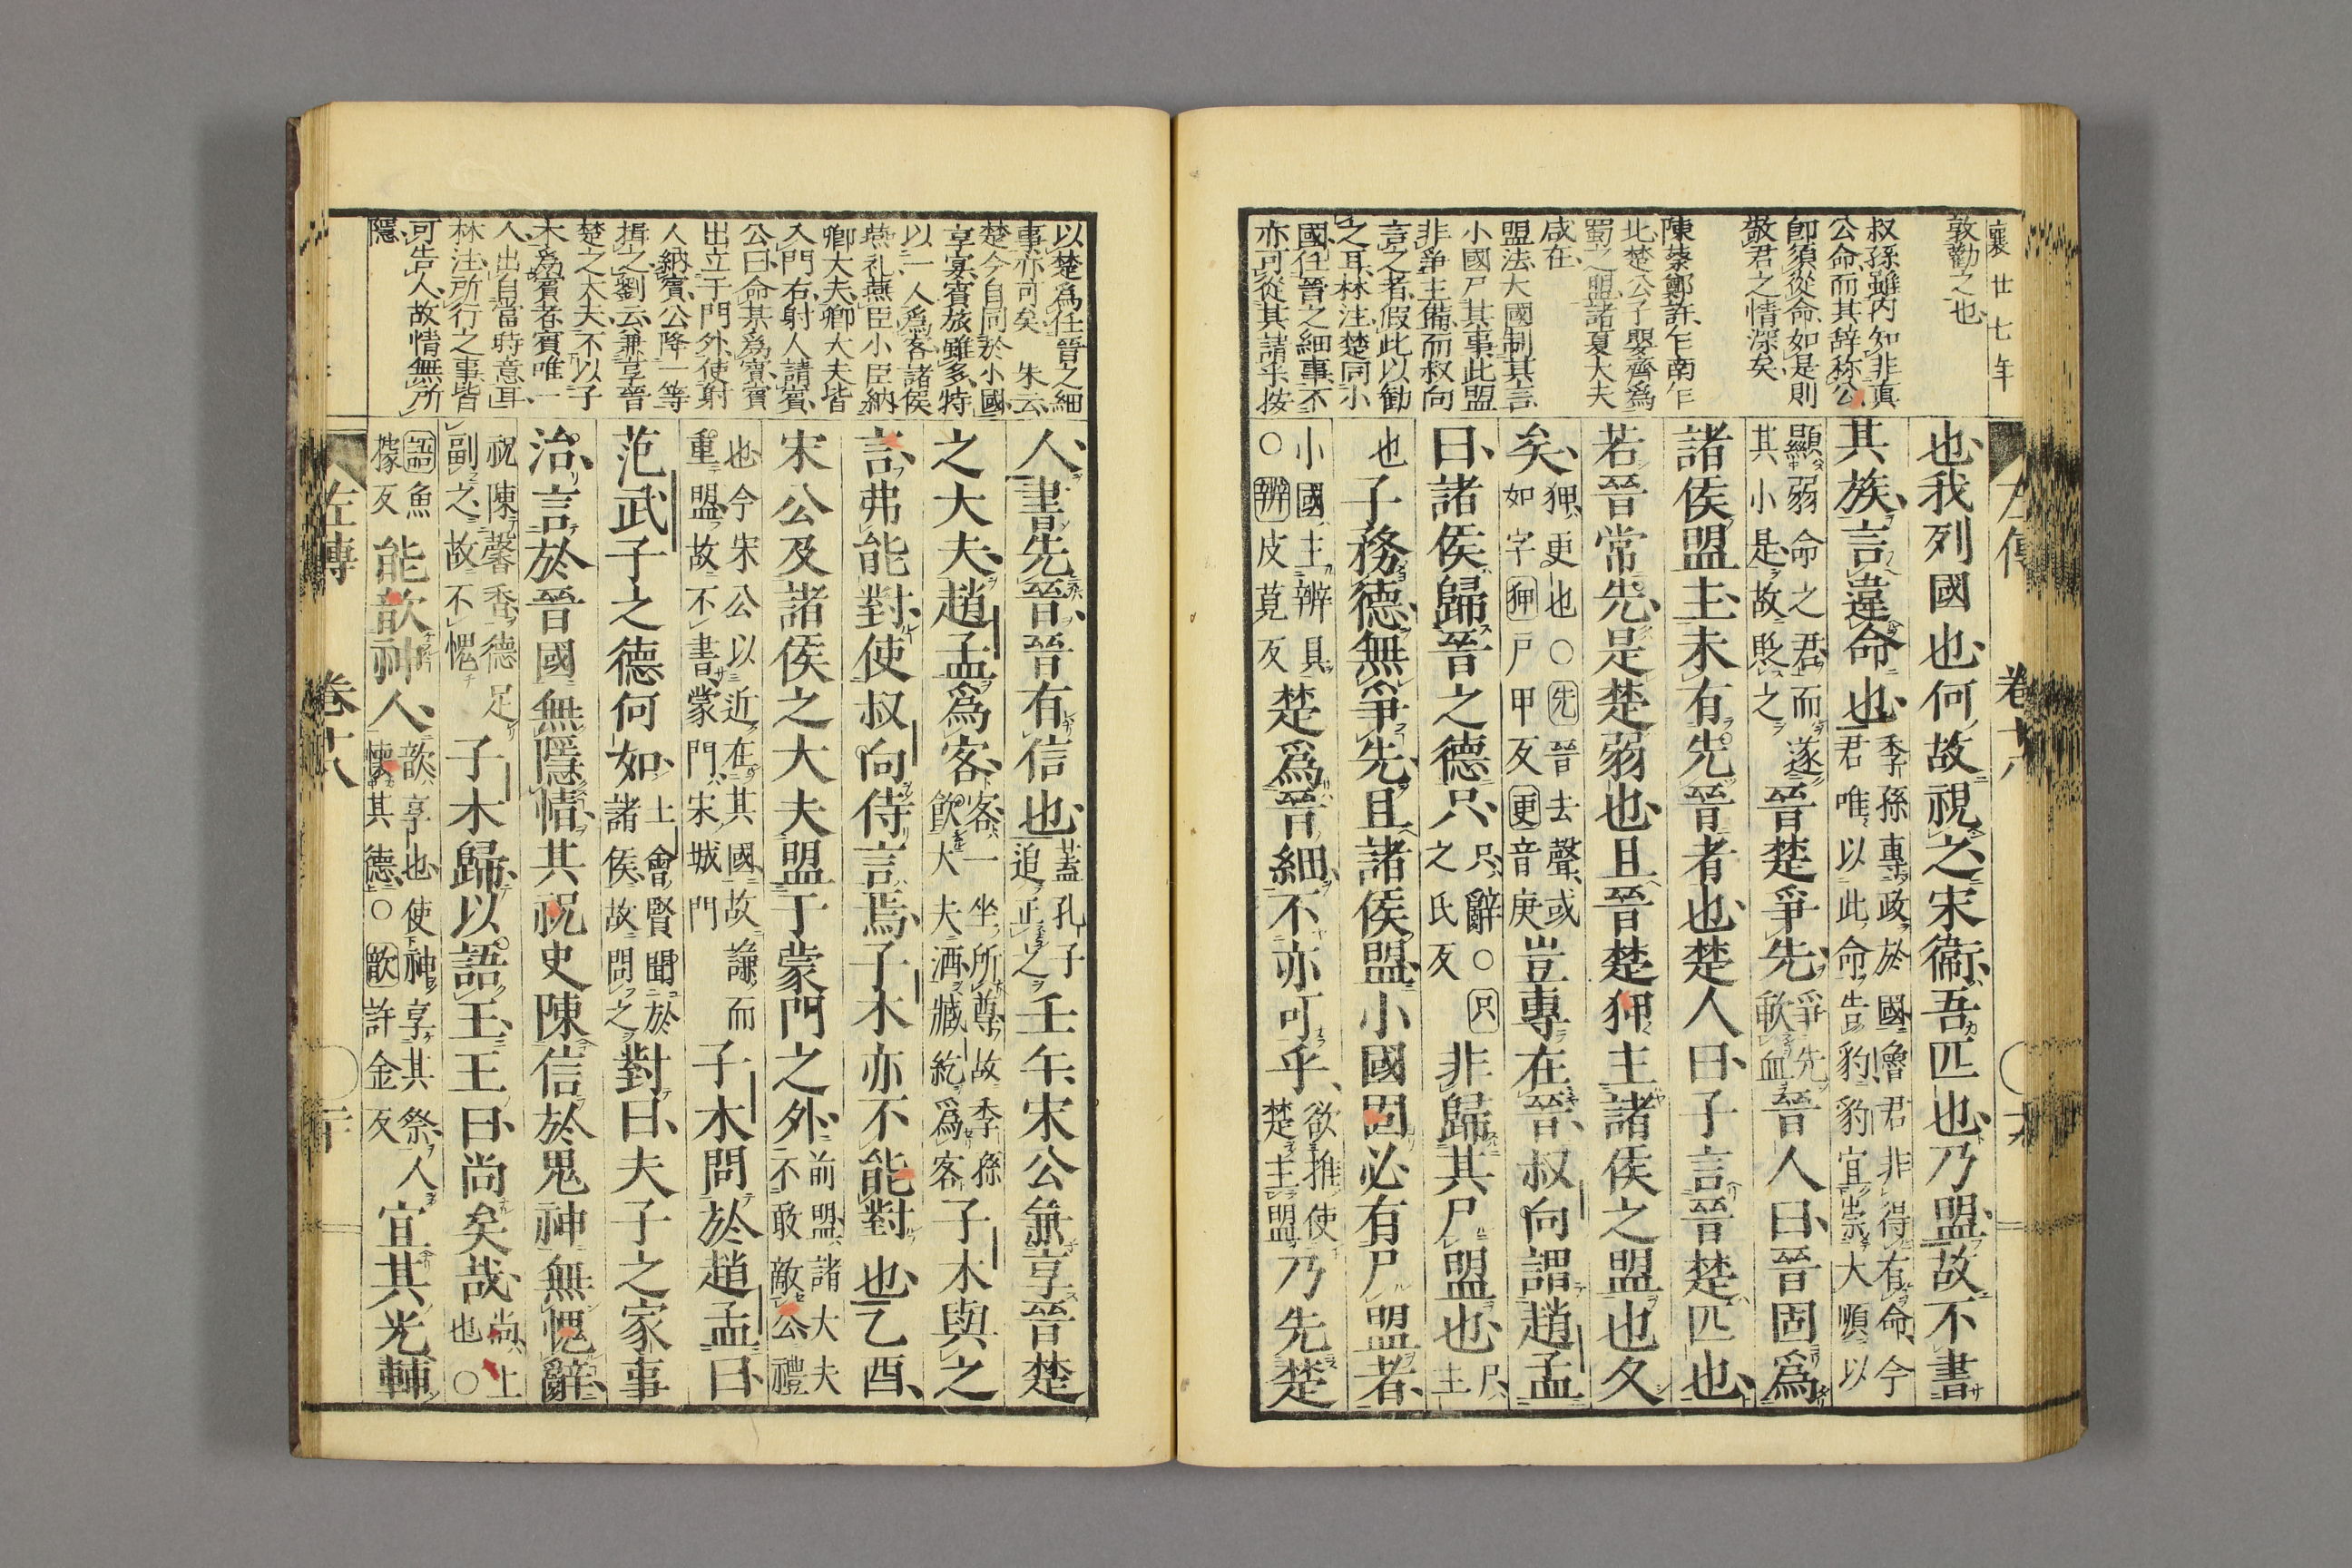 襄廿七年
敦勸之也
叔孫雖内知非眞
公命而其辞称公
即須從命如是則
敬君之情深矣
陳蔡鄭許乍南乍
北楚公子嬰齊爲
蜀之盟諸夏大夫
咸在
盟法大國制其言
小國尸其事此盟
非爭主備而叔向
言之者假此以勧
之耳林注楚同小
國任晉之細事不
亦可從其請乎按
也我列國也何故視之宋衞吾匹也乃盟故不書
其族言違命也季孫專政於國魯君非得有命今
君唯以此命告豹豹宜崇大順以
顯弱命之君而遂
其小是故貶之晉楚爭先爭先
歃血晉人曰晉固爲
諸侯盟主未有先晉者也楚人曰子言晉楚匹也
若晉常先是楚弱也且晉楚狎主諸侯之盟也久
矣狎更也○先晉去聲或
如字狎戸甲反更音庚豈專在晉叔向謂趙孟
曰諸侯歸晉之德只只辭○只
之氏反非歸其尸盟也尸主
也子務德無爭先且諸侯盟小國固必有尸盟者
小國主辨具
○辨皮莧反楚爲晉細不亦可乎欲推使
楚主盟乃先楚
左傳 卷十八
以楚爲任晉之細
事亦可矣 朱云
楚今自同於小國
享宴賓旅雖多特
以一人爲客諸侯
燕礼燕臣小臣納
卿大夫卿大夫皆
入門右射人請賓
公曰命某爲賓賓
出立于門外使射
人納賓公降一等
揖之劉云兼享晉
楚之大夫不以子
木爲賓者賓唯一
人出自當時意耳
林注所行之事皆
可告人故情無所
隱
人書先晉晉有信也蓋孔子
追正之壬午宋公兼享晉楚
之大夫趙孟爲客客一坐所尊故季孫
飮大夫酒臧紇爲客子木與之
言弗能對使叔向侍言焉子木亦不能對也乙酉
宋公及諸侯之大夫盟于蒙門之外前盟諸大夫
不敢敵公禮
也今宋公以近在其國故謙而
重盟故不書蒙門宋城門子木問於趙孟曰
范武子之德何如士會賢聞於
諸侯故問之對曰夫子之家事
治言於晉國無隱情其祝史陳信於鬼神無愧辭
祝陳馨香德足
副之故不愧子木歸以語王王曰尚矣哉尚上
也○
語魚
據反能歆神人歆享也使神享其祭人
懷其德○歆許金反宜其光輔
左傳 卷十八